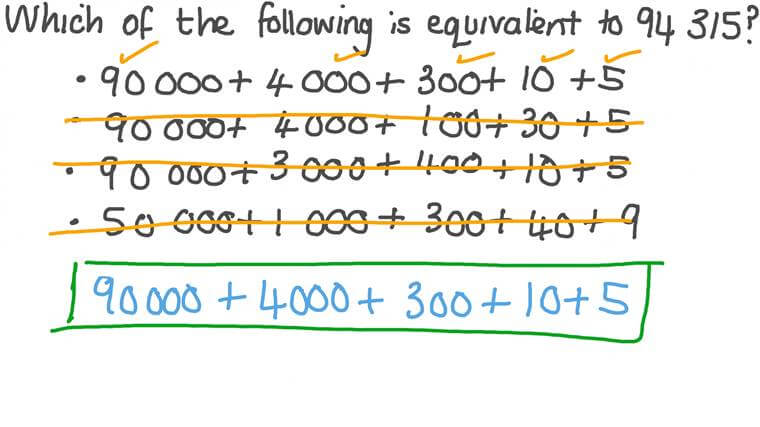 Which of the following is equivalent to 94 315?
• 90 000 + 4 000 + 300 + 10 + 5
90 000 + 4 000 + 100 + 30 + 5
• 90 000 + 3 000 + 400 + 10 + 5
• 50 000 + 1 000 + 300 + 40 + 9
90 000 + 4000 + 300 + 10 + 5